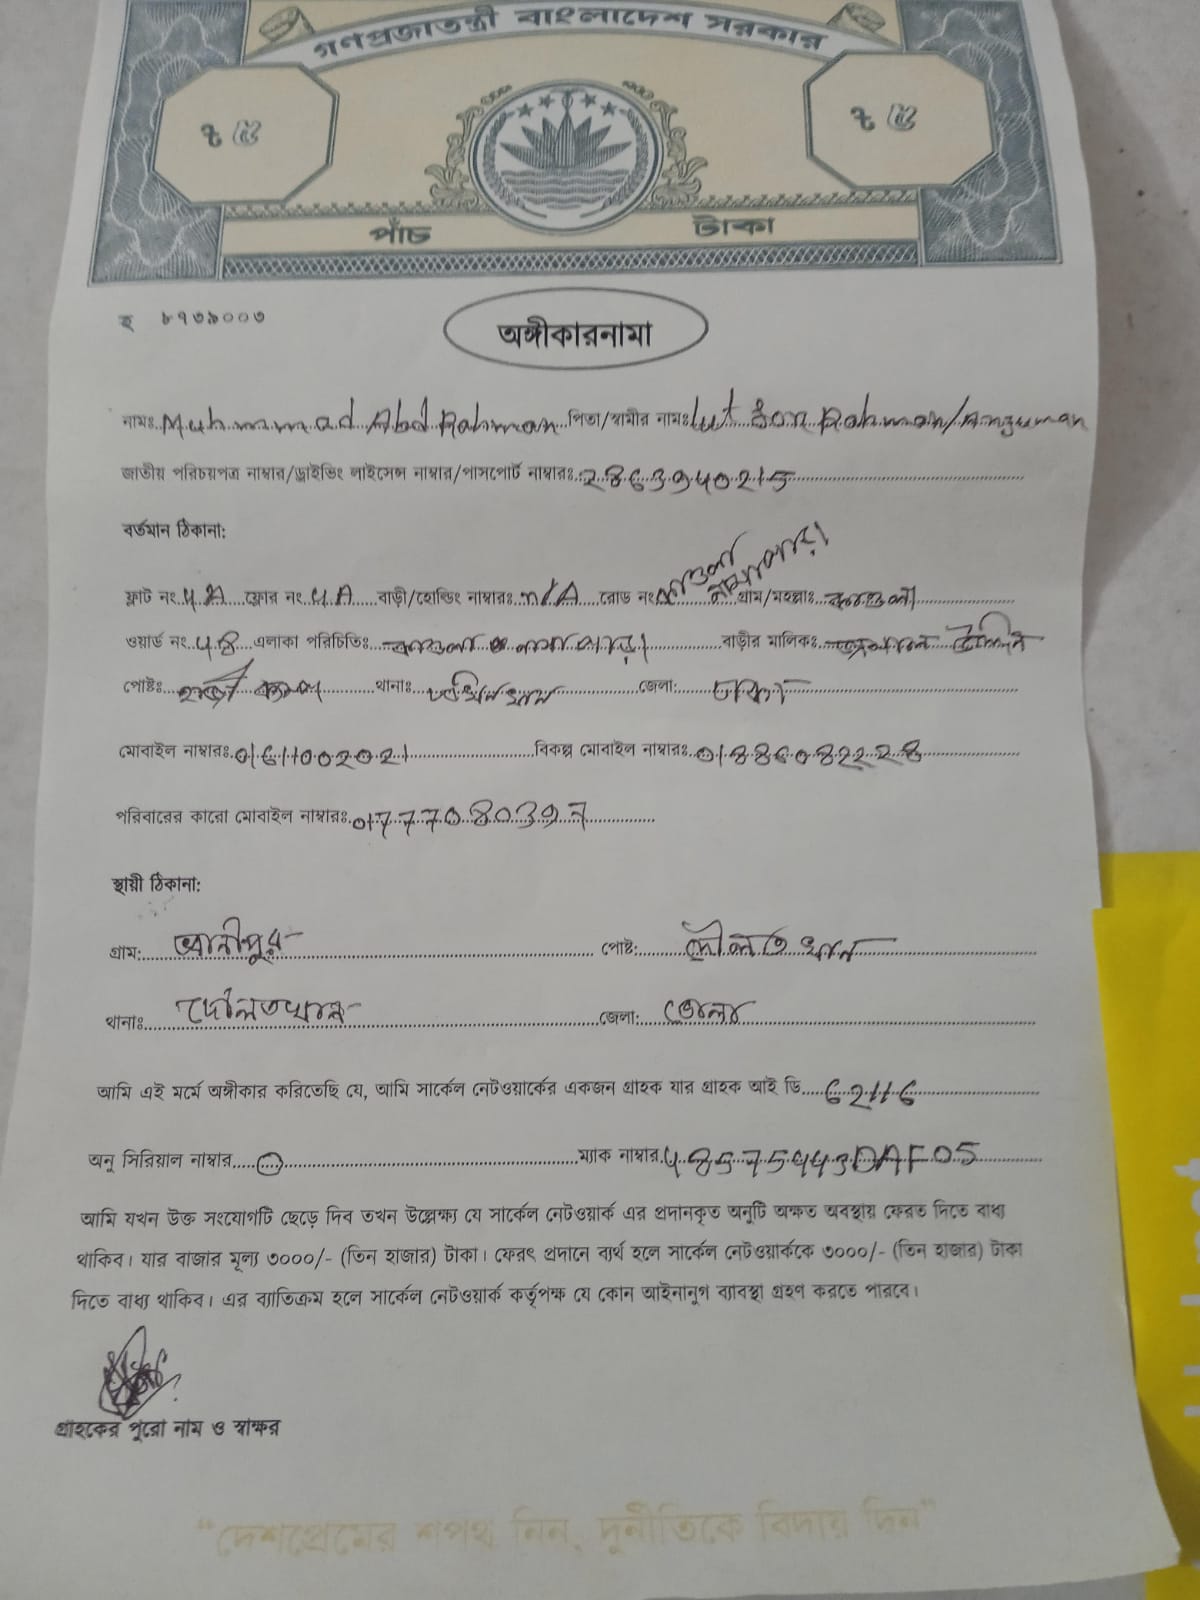 গণপ্রজাতন্ত্রী বাংলাদেশ সরকার
৳ ৫ ৳ ৫
পাঁচ টাকা
হ ৮৭৩৯০০৩
অঙ্গীকারনামা
নামঃ Muhammad Abd Rahman পিতা/স্বামীর নামঃ Lutfor Rahman/Anzuman
জাতীয় পরিচয়পত্র নাম্বার/ড্রাইভিং লাইসেন্স নাম্বার/পাসপোর্ট নাম্বারঃ 2863940215
বর্তমান ঠিকানা:
ফ্লাট নং 4A ফ্লোর নং 4A বাড়ী/হোল্ডিং নাম্বারঃ N/A রোড নং কাওলা নামাপাড়া গ্রাম/মহল্লাঃ কাওলা
ওয়ার্ড নং 48 এলাকা পরিচিতিঃ কাওলা নামাপাড়া বাড়ীর মালিকঃ উদ্দিন
পোষ্টঃ হাজী ক্যাম্প থানাঃ দক্ষিনখান জেলা: ঢাকা
মোবাইল নাম্বারঃ 01611002021 বিকল্প মোবাইল নাম্বারঃ 01886082228
পরিবারের কারো মোবাইল নাম্বারঃ 01777080397
স্থায়ী ঠিকানা:
গ্রাম: পোষ্ট: দৌলত খান
থানাঃ দৌলতখান জেলা: ভোলা
আমি এই মর্মে অঙ্গীকার করিতেছি যে, আমি সার্কেল নেটওয়ার্কের একজন গ্রাহক যার গ্রাহক আই ডি 62116
অনু সিরিয়াল নাম্বার ম্যাক নাম্বার 48575443DAF05
আমি যখন উক্ত সংযোগটি ছেড়ে দিব তখন উল্লেক্ষ্য যে সার্কেল নেটওয়ার্ক এর প্রদানকৃত অনুটি অক্ষত অবস্থায় ফেরত দিতে বাধ্য
থাকিব। যার বাজার মূল্য ৩০০০/- (তিন হাজার) টাকা। ফেরৎ প্রদানে ব্যর্থ হলে সার্কেল নেটওয়ার্ককে ৩০০০/- (তিন হাজার) টাকা
দিতে বাধ্য থাকিব। এর ব্যাতিক্রম হলে সার্কেল নেটওয়ার্ক কর্তৃপক্ষ যে কোন আইনানুগ ব্যাবস্থা গ্রহণ করতে পারবে।
গ্রাহকের পুরো নাম ও স্বাক্ষর
“দেশপ্রেমের শপথ নিন, দুর্নীতিকে বিদায় দিন”